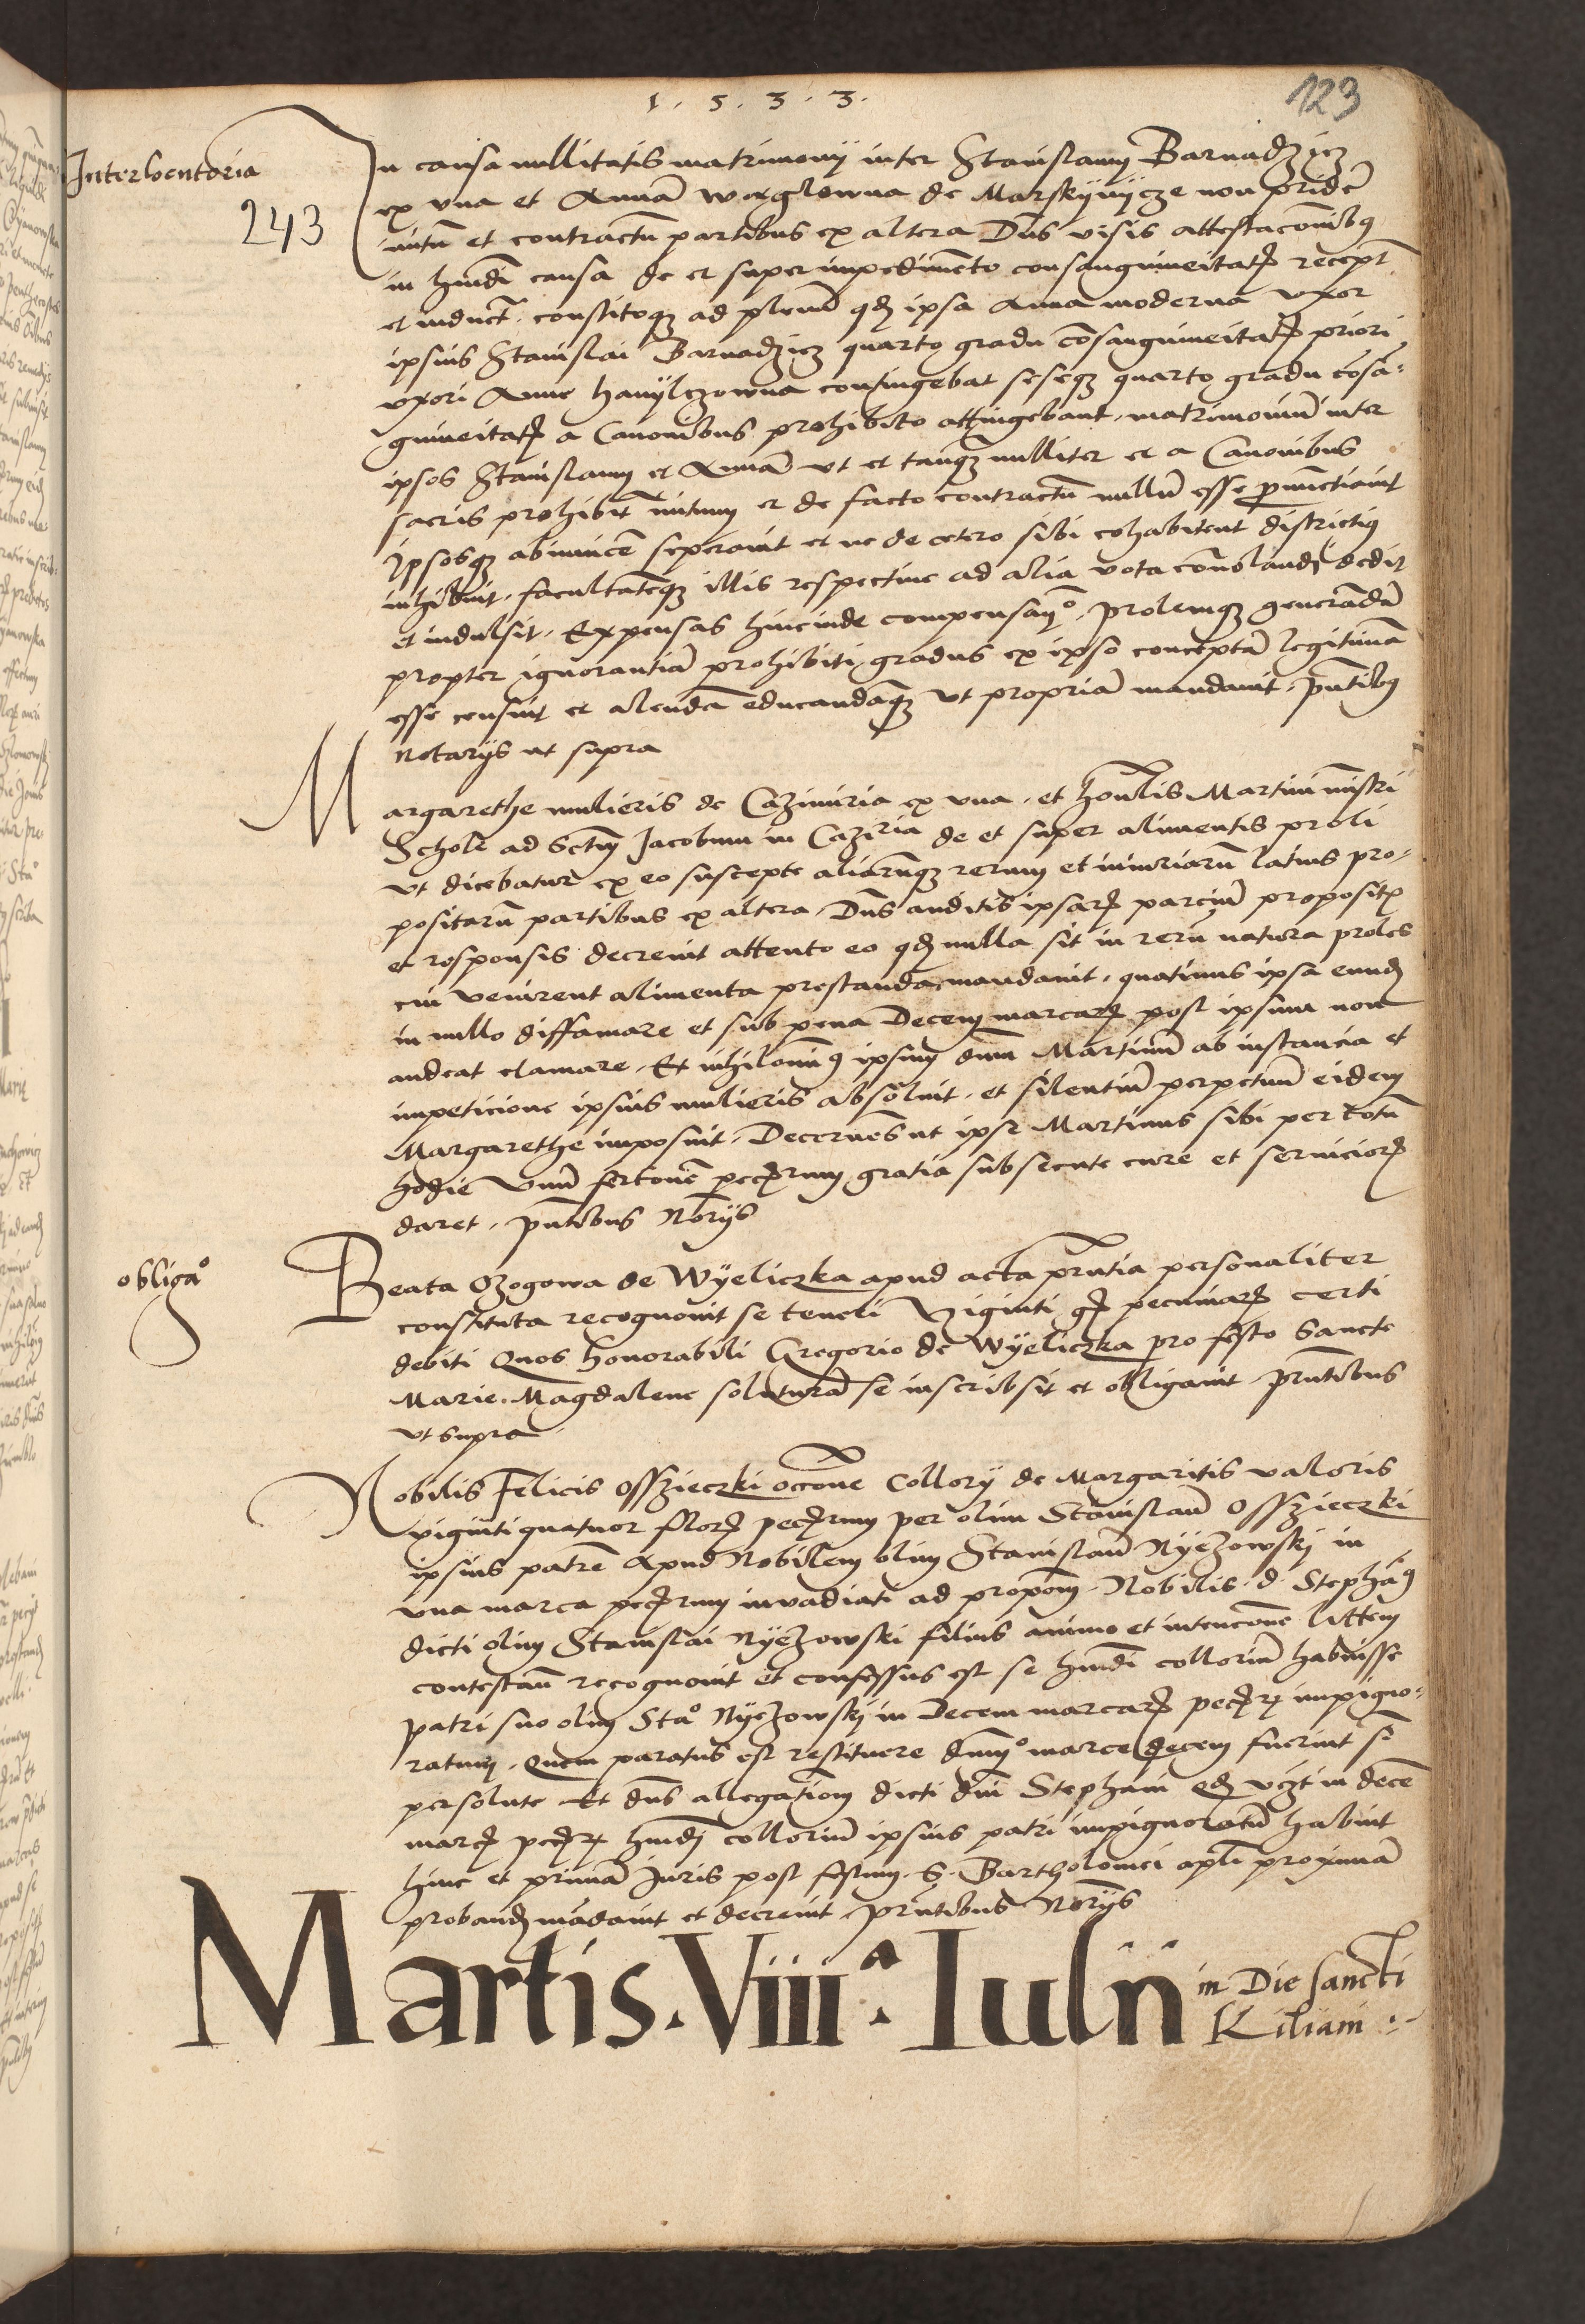 1 . 5 . 3 . 3 .
123
Interlocutoria
243
In causa nullitatis matrimonÿ inter Stanislaum Barnadzicz
ex vna et Annā werglowna de Marskÿvÿcze non pridē
initū et contractū partibus ex altera Dn̄s visis attestacōnibꝰ
in hmōdi causa de et super impedimento consanguineitatꝭ recept̄
et induct̄. constitoqꝫ ad plenū qꝫ ipsa Anna moderna vxor
ipsius Stanislai Barnadzicz quarto gradu cōsanguineitatꝭ priori
vxori Anne Hanÿlczowna contingebat seseqꝫ quarto gradu cōsā-
guineitatꝭ a Canonibus prohibito attingebant. matrimoniū inter
ipsos Stanislaum et Annā vt et tanqꝫ nulliter et a Canonibus
sacris prohibit̄ initum et de facto contractū nullū esse pronunctiauit
Ipsosqꝫ abinuicē seperauit et ne de cetero sibi cohabitent districtiꝰ
inhibuit. facultatēqꝫ illis respectiue ad alia vota conuolandi dedit
et indulsit. Expensas hincinde compensaṇº. prolemqꝫ generandā
propter ignorantiā prohibiti gradus ex ipso conceptā legitimā
esse censuit et alendā educandāqꝫ vt propriā mandauit. pn̄tibꝰ
Notarÿs ut supra
Margarethe mulieris de Cazimiria ex vna. et honn̄lis Martini mn̄stri
Schole ad Sctm̄ Jacobum in Caziria de et super alimentis proli
vt dicebatur ex eo suscepte aliarūqꝫ rerum et iniuriarū latius pro-
positarū partibus ex altera. Dn̄s auditis ipsarꝫ parciū propositꝭ
et responsis decreuit attento eo qꝫ nulla sit in rerū natura proles
cui venirent alimenta prestanda mandauit. quatinus ipsa eundꝫ
in nullo diffamare et sub pena Decem marcarꝫ post ipsum non
audeat clamare. Et nihilominꝰ ipsum dnm̄ Martinū ab instancia et
impeticione ipsius mulieris absoluit. et silentiū perpetuū eidem
Margarethe imposuit. Decernēs ut ipse Martinus sibi per totū
hodie vnū fertonē pecꝫrum gratia subsecute cure et seruiciorꝫ
daret. pn̄tibus Norÿs
obligaº
Beata Ozogowa de Wÿeliczka apud acta pr̄ntia personaliter
constituta recognouit se teneri viginti gꝫ pecuniarꝫ certi
debiti Quos honorabili Gregorio de Wÿeliczka pro festo Sancte
Marie. Magdalene soluturā se inscribsit et obligauit. pr̄ntibus
ut supra
Nobilis Felicis Osszieczki occōne Collorÿ de Margaritis valoris
vigintiquatuor florꝫ pecꝫrum per olim Stanislaū Osszieczki
ipsius patrē Apud Nobilem olim Stanislaū Nÿezowskj in
vna marca pecꝫrum invadiati ad propōm. Nobilis. d. Stephāꝰ
dicti olim Stanislai Nÿezowski filius animo et intencōne littem
contestan̄ recognouit et confessus est se hmōdi colloriū habuisse
patri suo olim Staº Nÿezowskj in Decem marcarꝫ pecꝫrꝫ impigno-
ratum. Quem paratus est restituere dūmº marce decem fuerint sī
persolute Et dn̄s allegationem dicti dn̄i Stephani qꝫ vzt in decē
marcꝫ pecꝫrꝫ hmōdj colloriū ipsius patri impignoratū habuit
hinc et primā Juris post festum. S. Bartholomei apl̄i proximā
probandꝫ mādauit et decreuit. pr̄ntibus Norÿs
Martis. Viiiᵃ. Iulii in Die Sancti
Kiliani